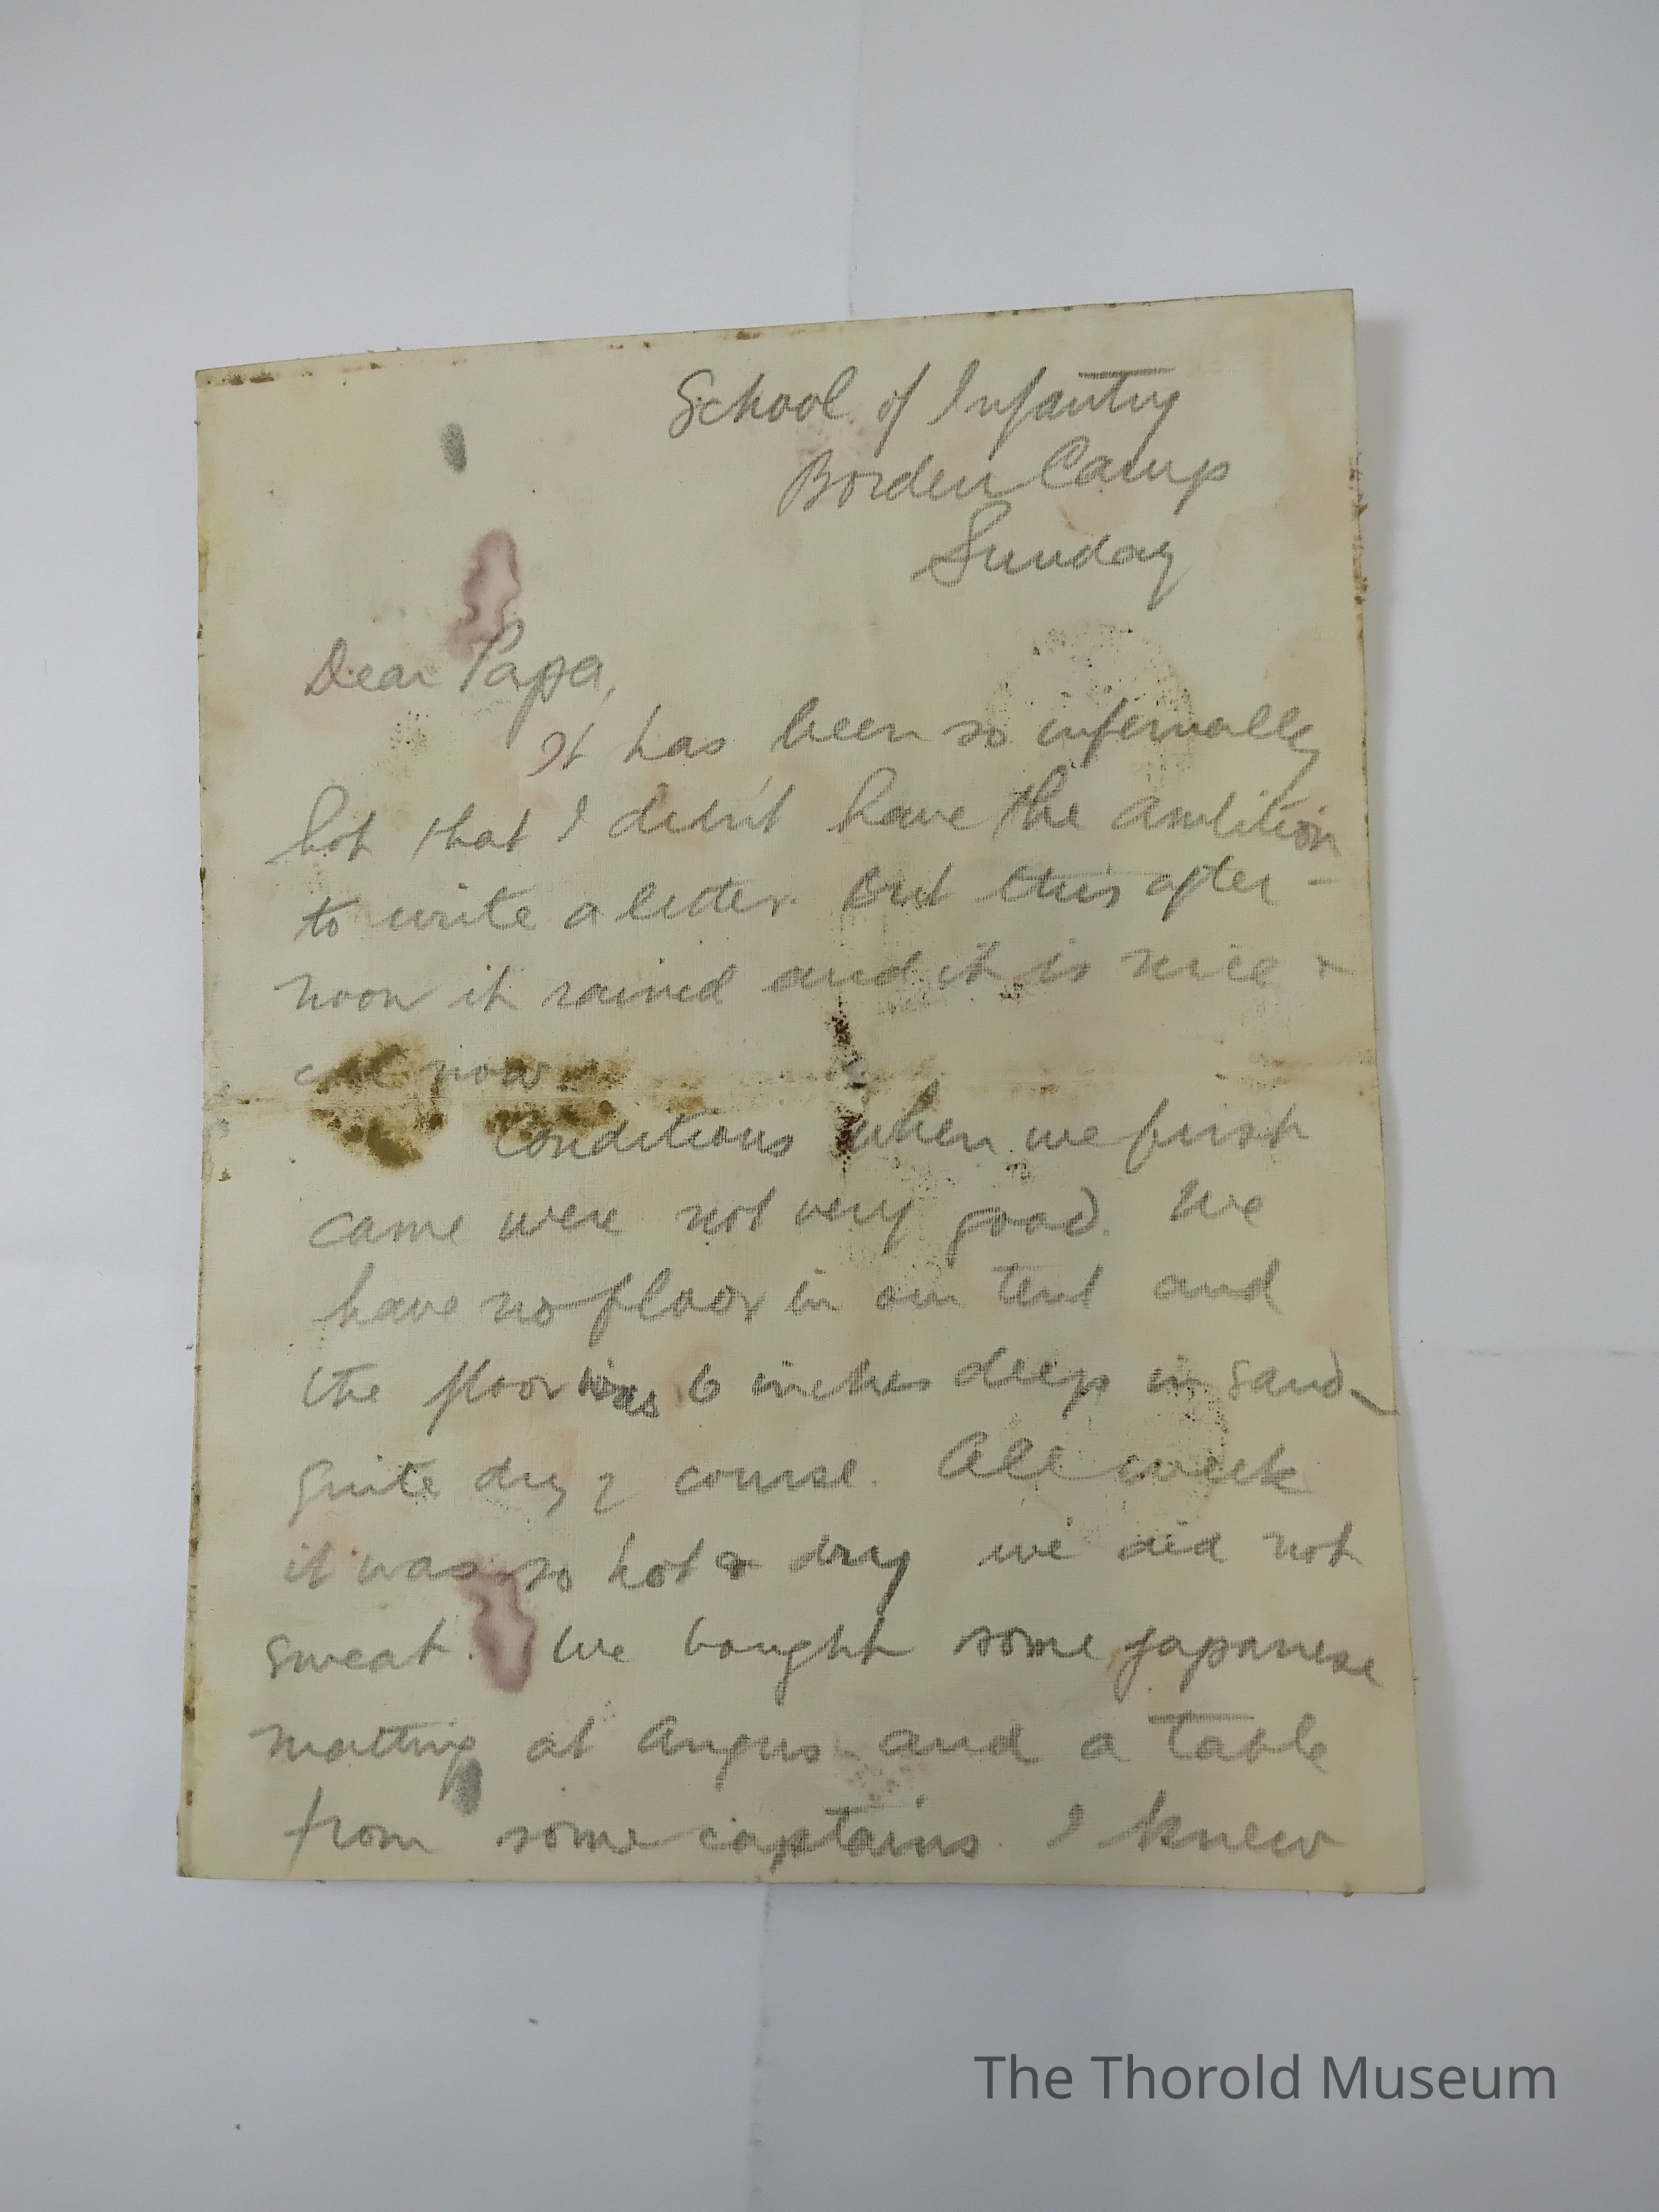 School of Infantry
Borden Camp
Sunday
Dear Papa,
It has been so infernally
hot that I didn't have the ambition
to write a letter. But this after-
noon it rained and it is nice +
now.
Conditions when we first
came were not very good. We
have no floor in our tent and
the floor was 6 inches deep in sand
quite dry of course. All week
it was so hot & dry we did not
sweat. We bought some japanese
matting at Angus and a table
from some captains I knew
The Thorold Museum